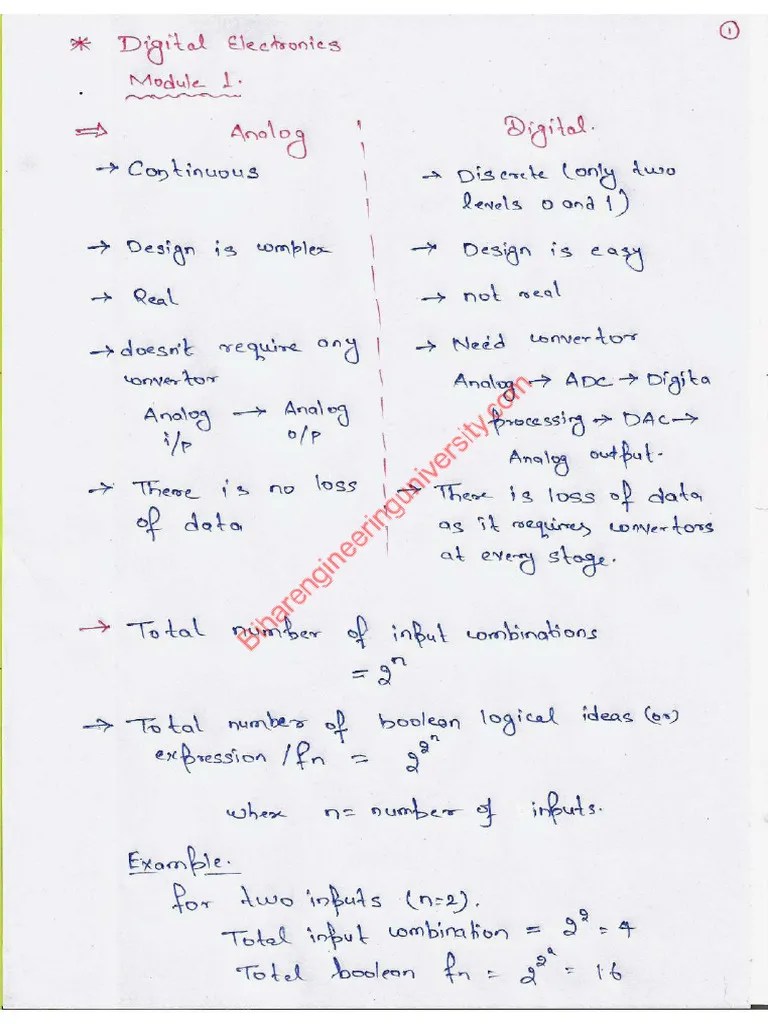 1
* Digital Electronics
Module 1.
⇒ Analog Digital.
→ Continuous → Discrete (only two
levels 0 and 1)
→ Design is complex → Design is easy
→ Real → not real
→ doesn't require any → Need convertor
convertor Analog → ADC → Digita
Analog → Analog processing → DAC →
i/p o/p Analog output.
→ There is no loss → There is loss of data
of data as it requires convertors
at every stage.
Biharengineeringuniversity.com
→ Total number of input combinations
= 2^n
→ Total number of boolean logical ideas (or)
expression /fn = 2^2^n
where n= number of inputs.
Example.
for two inputs (n=2).
Total input combination = 2^2 = 4
Total boolean fn = 2^2^2 = 16